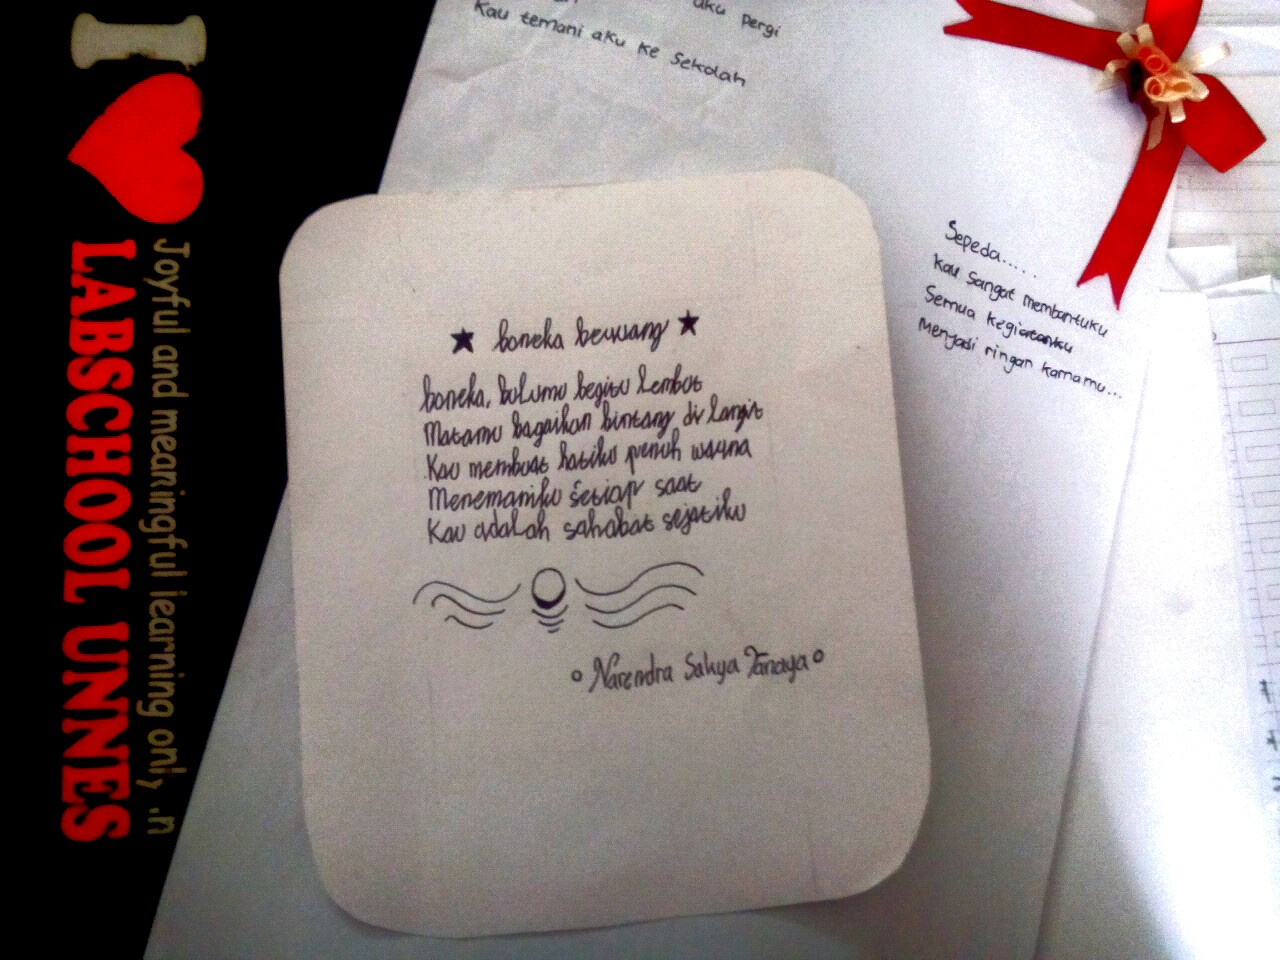 I
LABSCHOOL UNNES
Joyful and meaningful learning only .n
aku pergi
Kau temani aku ke Sekolah
Sepeda.....
Kau Sangat membantuku
Semua kegiatanku
Menjadi ringan karnamu...
boneka beruang
boneka, bulumu begitu lembut
Matamu bagaikan bintang di langit
Kau membuat hatiku penuh warna
Menemaniku setiap saat
Kau adalah sahabat sejatiku
Narendra Sakya Tanaya